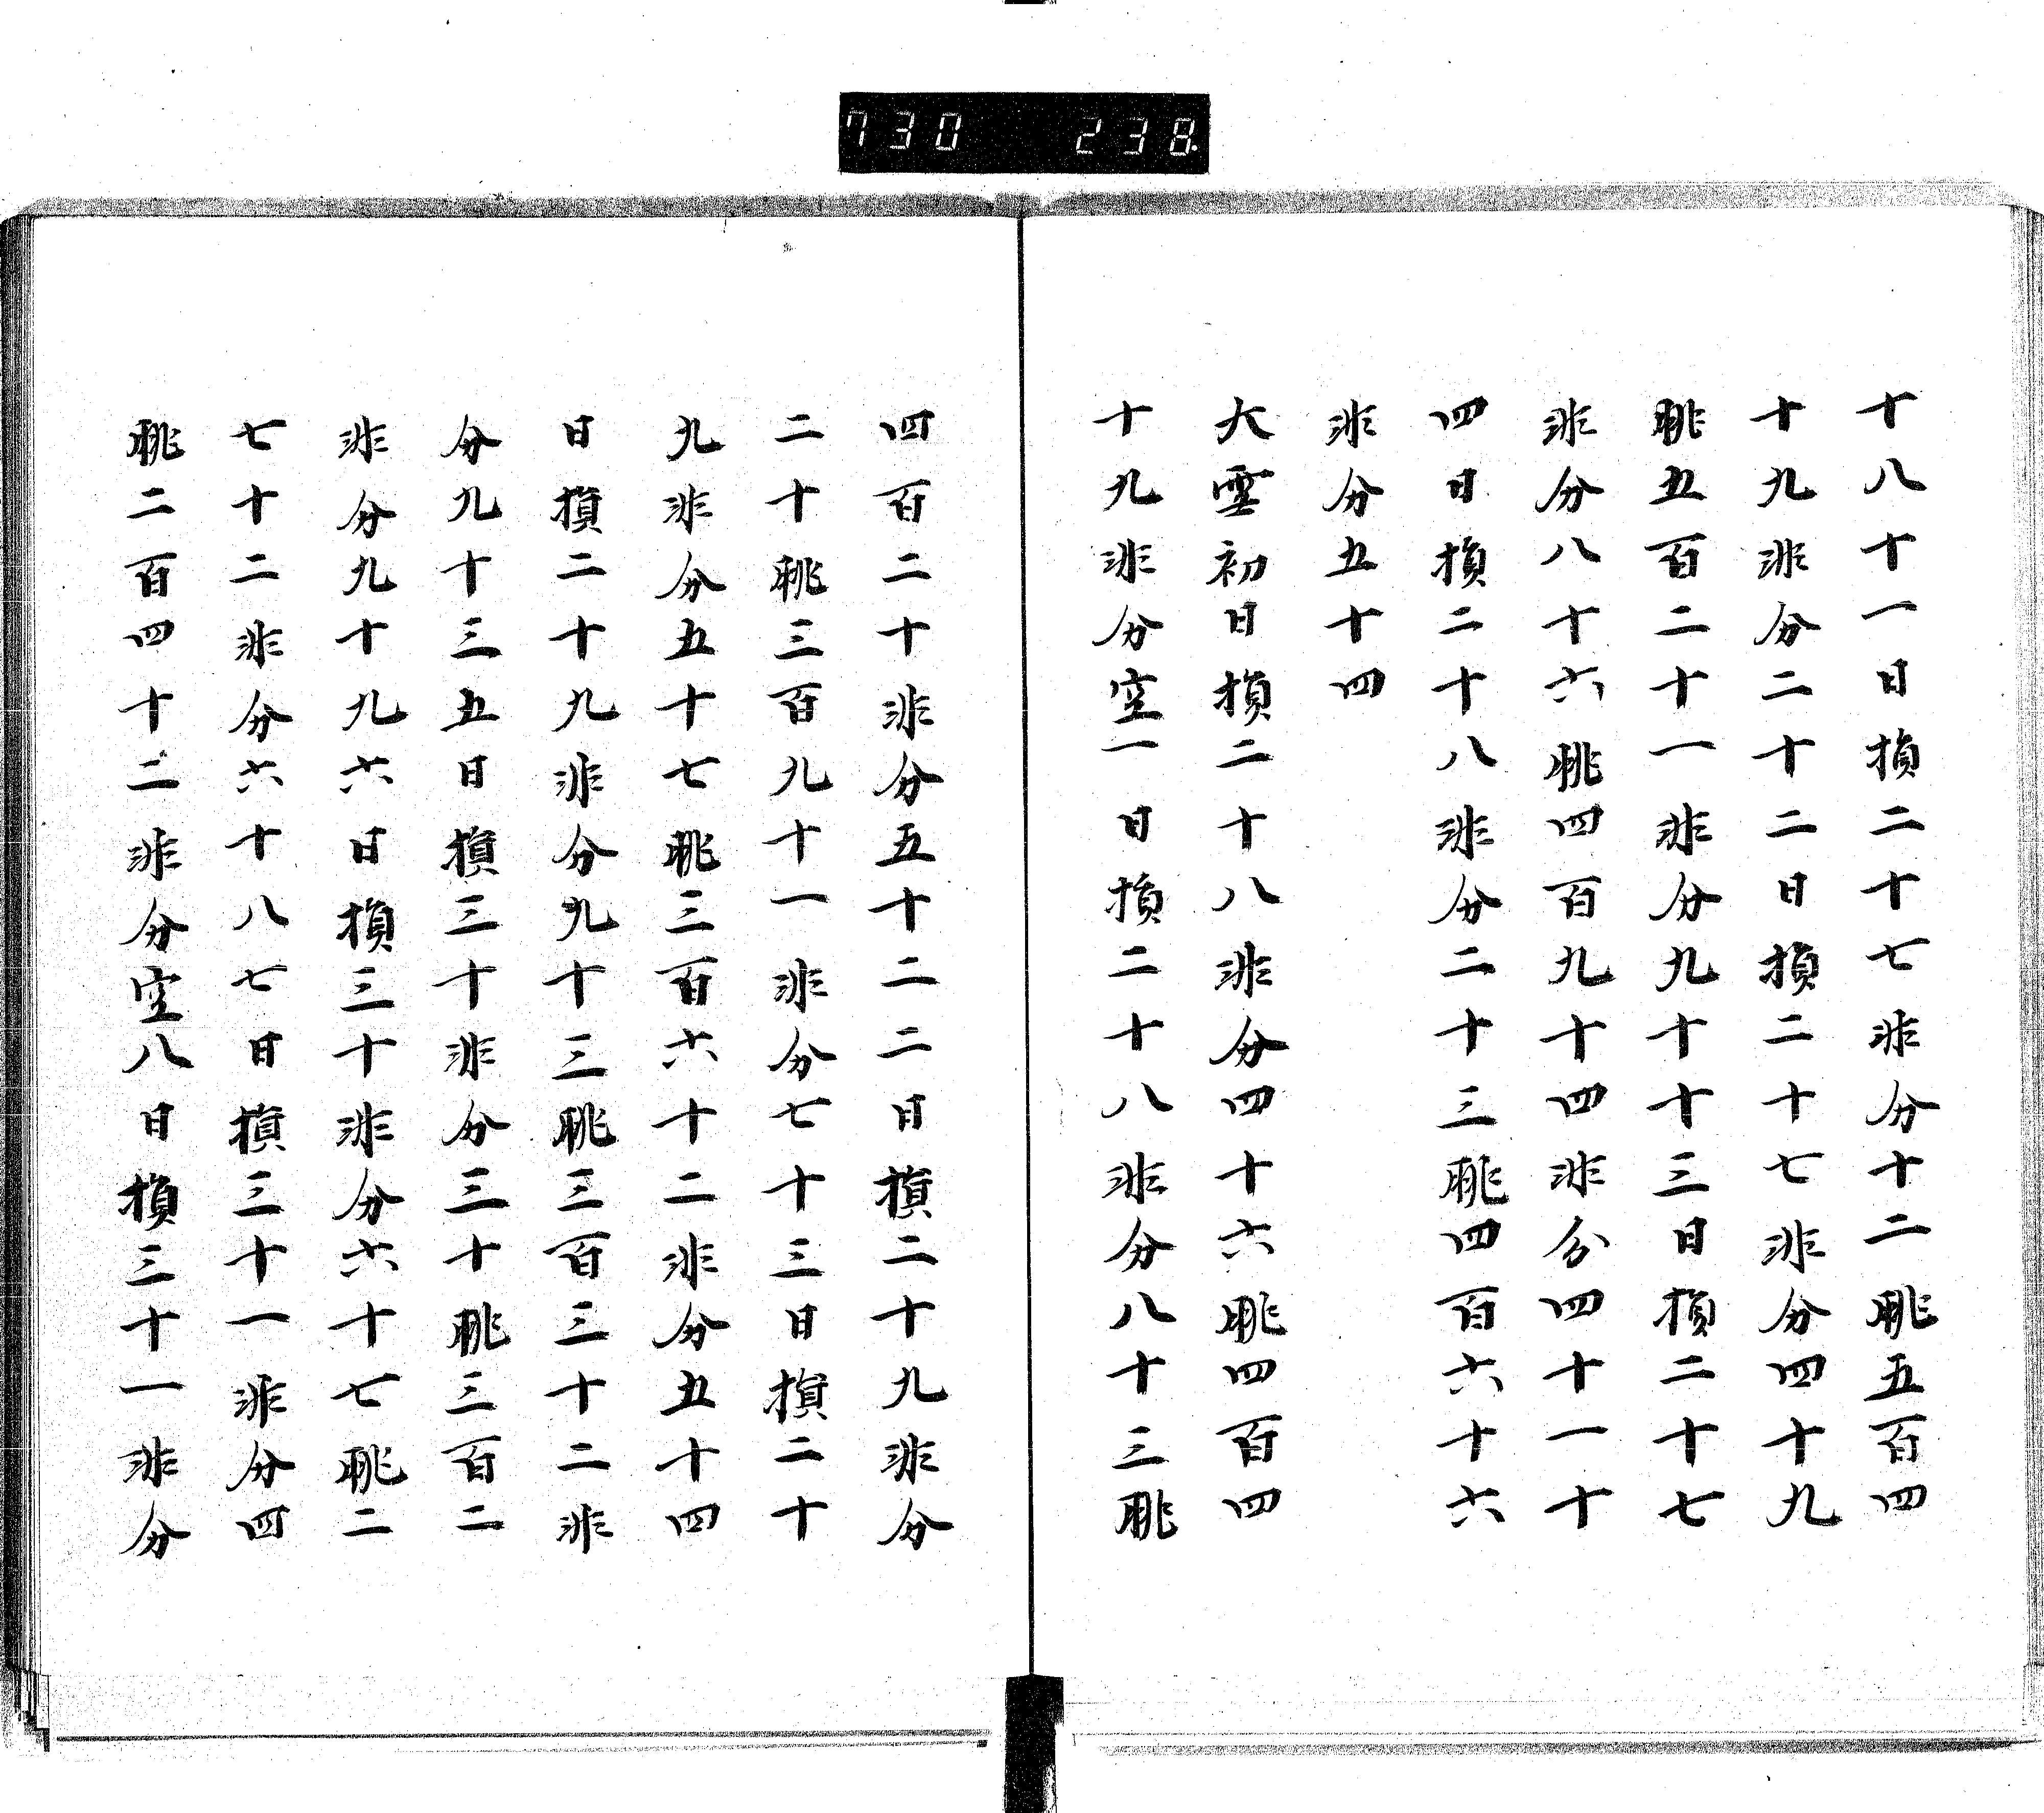 730 238.
十八十一日損二十七非分十二朓五百四
十九非分二十二日損二十七非分四十九
朓五百二十一非分九十十三日損二十七
非分八十六朓四百九十四非分四十一十
四日損二十八非分二十三朓四百六十六
非分五十四
大雪初日損二十八非分四十六朓四百四
十九非分空一日損二十八非分八十三朓
四百二十非分五十二二日損二十九非分
二十朓三百九十一非分七十三日損二十
九非分五十七朓三百六十二非分五十四
日損二十九非分九十三朓三百三十二非
分九十三五日損三十非分三十朓三百二
非分九十九六日損三十非分六十七朓二
七十二非分六十八七日損三十一非分四
朓二百四十二非分空八日損三十一非分